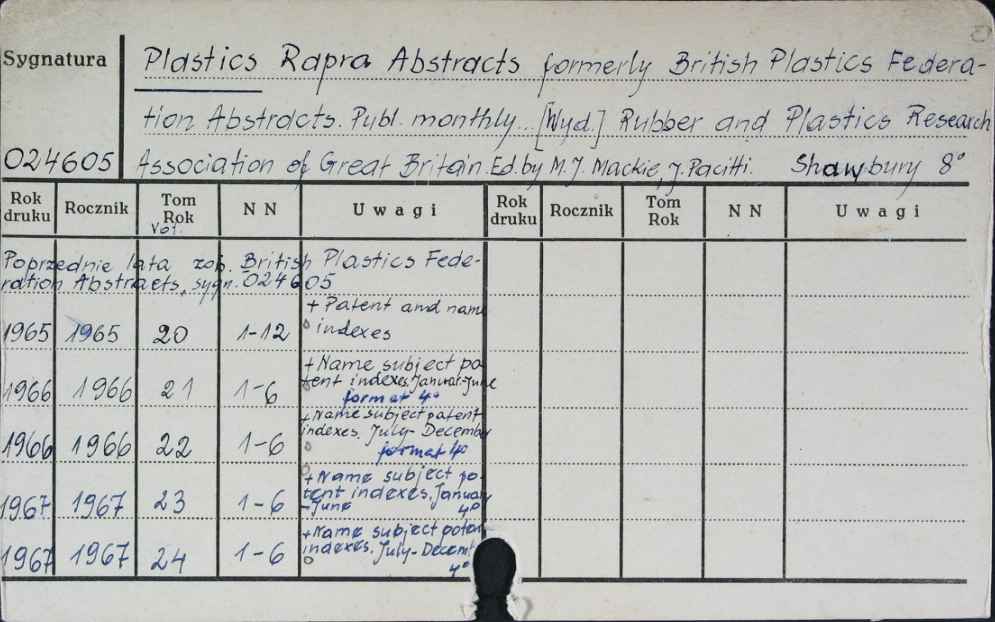 Sygnatura
Plastics Rapra Abstracts formerly British Plastics Federa-
tion Abstracts. Publ. monthly... [Wyd.] Rubber and Plastics Research
024605 Association of Great Britain. Ed. by M. J. Mackie, J. Pacitti. Shawbury 8°
Rok druku Rocznik Tom Rok Vol. N N Uwagi Rok druku Rocznik Tom Rok N N Uwagi
Poprzednie lata zob. British Plastics Fede-
ration Abstracts, sygn. 024605
+ Patent and name
1965 1965 20 1-12 indexes
+ Name subject pa-
tent indexes. Januar.-June
1966 1966 21 1-6 format 4°
+ Name subject patent
indexes. July-December
1966 1966 22 1-6 format 4°
+ Name subject pa-
tent indexes. January
1967 1967 23 1-6 -June 4°
+ Name subject paten
indexes. July-Decem
1967 1967 24 1-6 4°